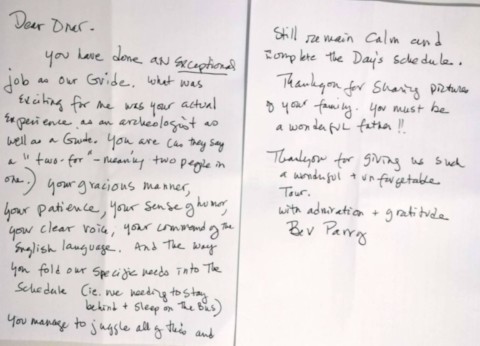 Dear Omer.
you have done an exceptional
job as our Guide. What was
exciting for me was your actual
experience as an archeologist as
well as a Guide. You are (as they say
a "two-for" - meaning two people in
one.) your gracious manner,
your patience, your sense of humor,
your clear voice, your command of the
English language. And the way
you fold our specific needs into the
schedule (ie. me needing to stay
behind + sleep on the Bus)
you manage to juggle all of this and
Still remain Calm and
complete the Day's schedule.
Thankyou for Sharing pictures
of your family. You must be
a wonderful father!!
Thankyou for giving us such
a wonderful + unforgetable
Tour.
with admiration + gratitude
Bev